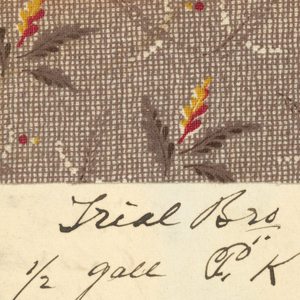 Trial Bro
1/2 gall P" K